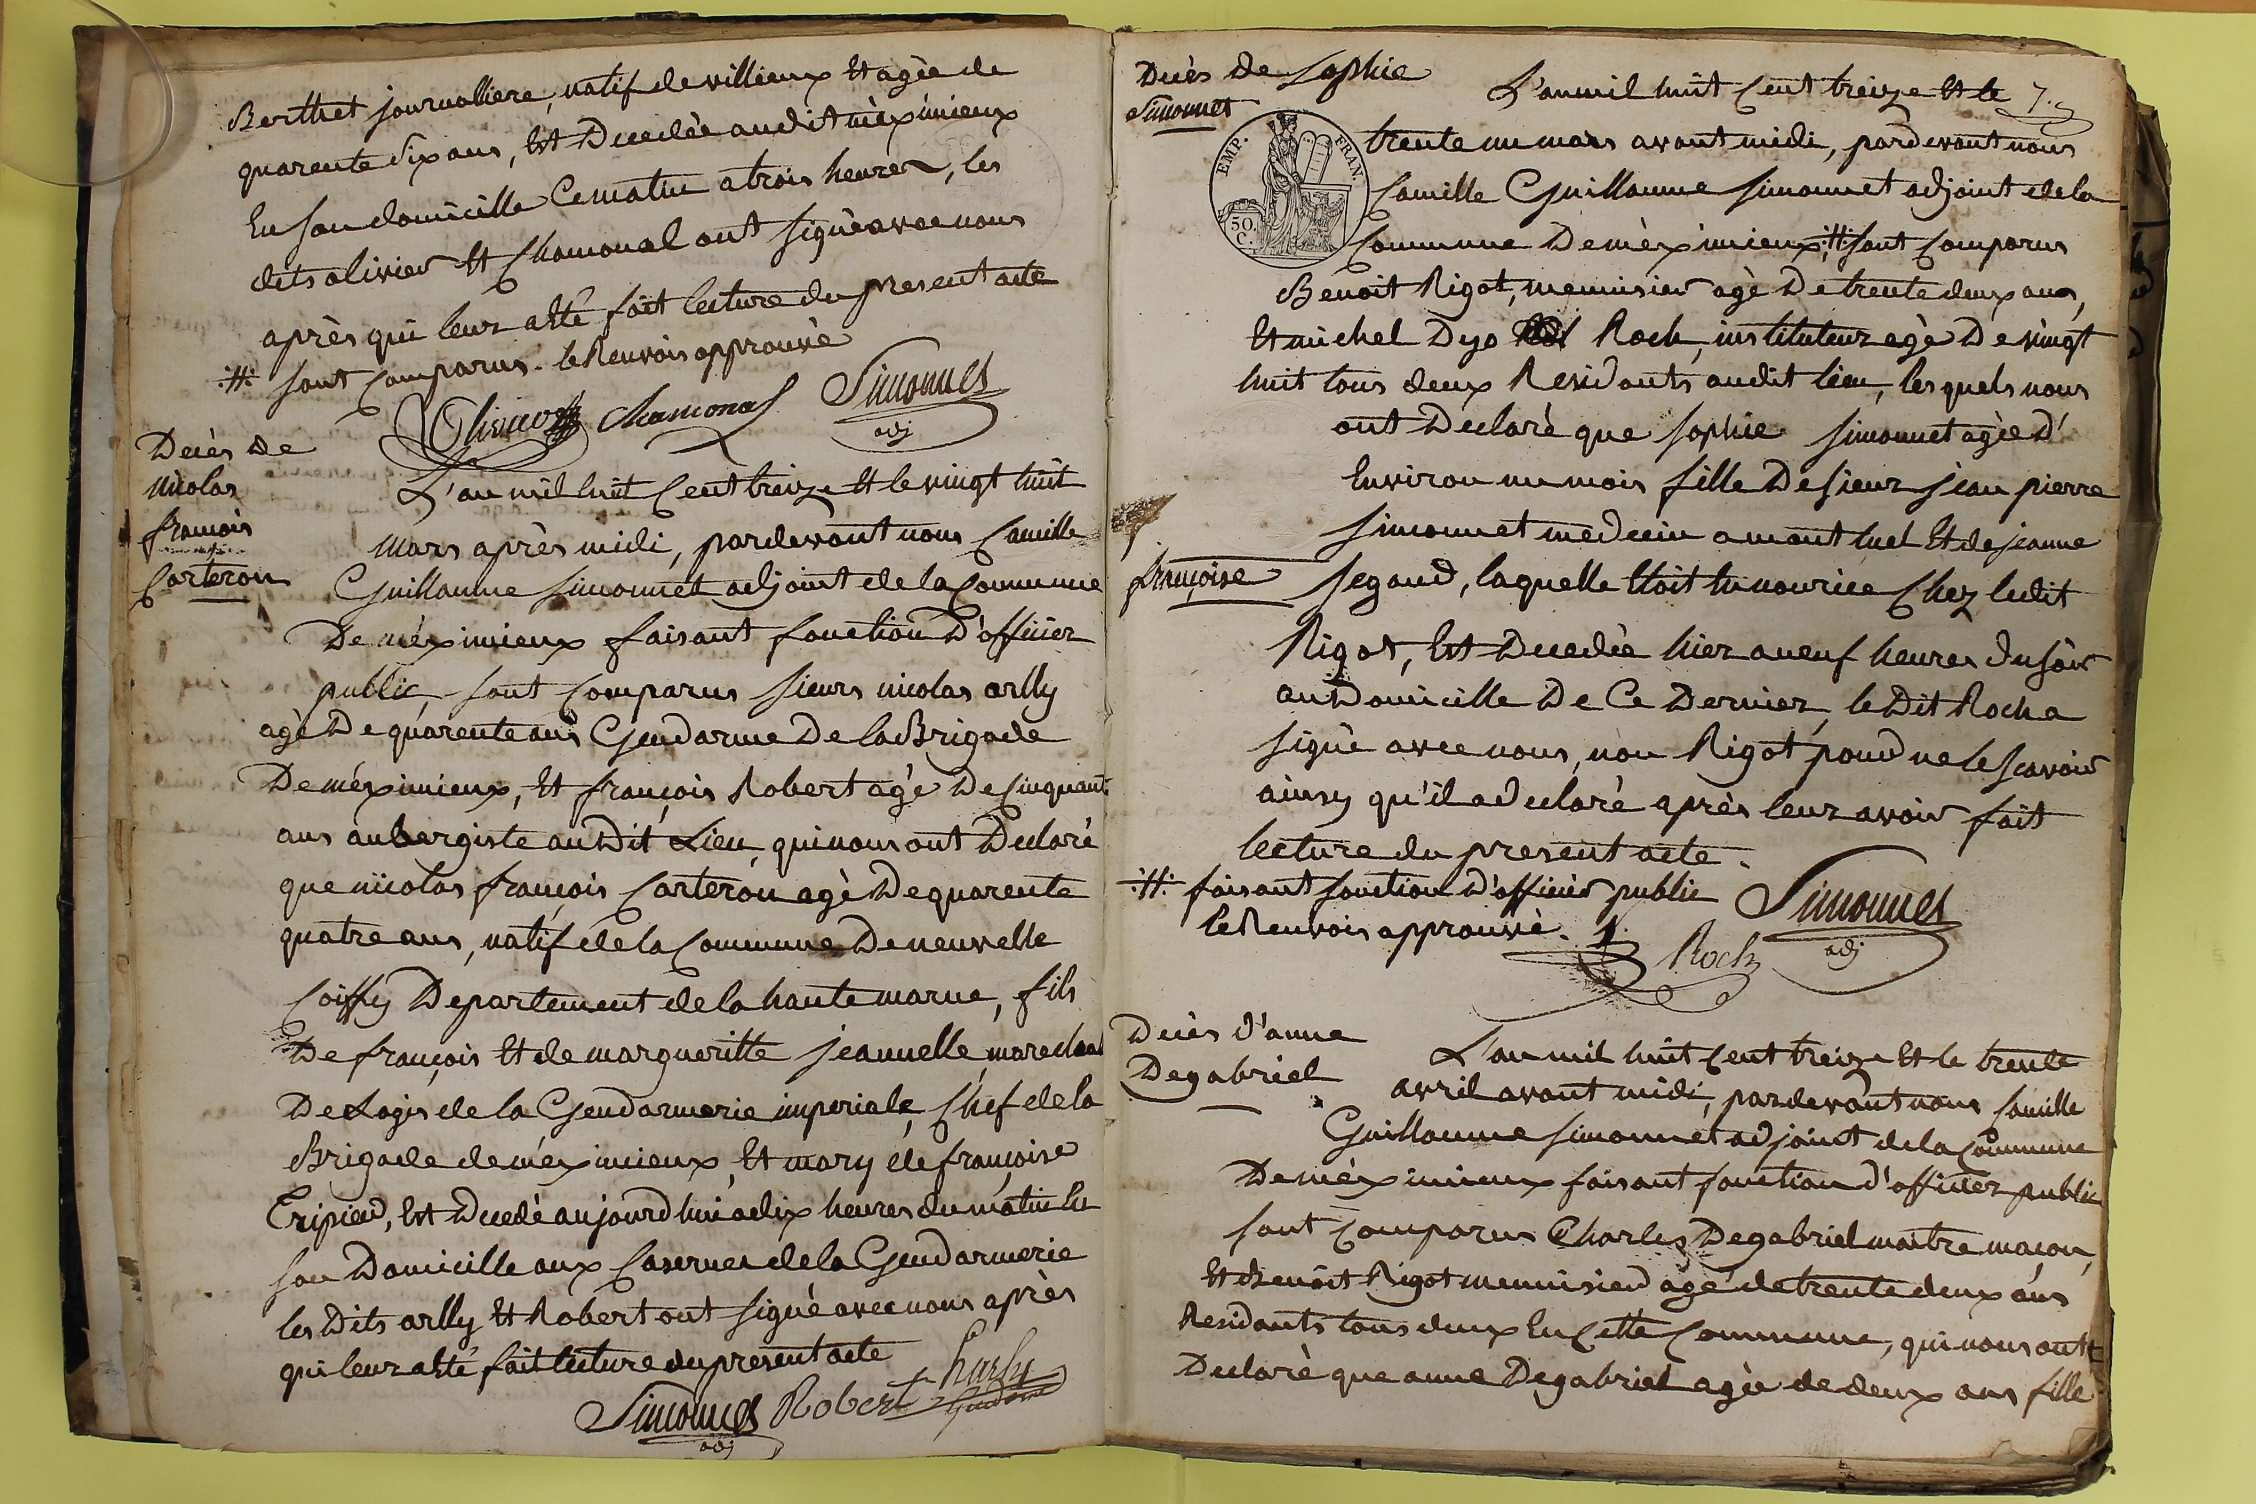 Berthet journalliere, natif de villieux Et agèe de
quarente six ans, Est Decedèe audit mèximieux
En son domicille Ce matin a trois heures, les
dits olivier Et Chamonal ont signè avec nous
après qui leur atté fait lecture du present acte
:#: sont Comparus. le Renvois approuvè
Olivier Chamonal Simonnet
adj
Decès de
nicolas
francois
Carteron
L'an mil huit Cent treize Et le vingt huit
mars après midi, pardevant nous Camille
Guillaume Simonnet adjoint de la Commune
De méximieux faisant fonction D'officier
public, sont Comparus Sieurs nicolas arlly
agè De quarente ans Gendarme De la Brigade
De méximieux, Et françois Robert agè De Cinquante
ans aubergiste au Dit Lieu, qui nous ont Declarè
que nicolas françois Carteron agè De quarente
quatre ans, natif de la Commune De neuvelle
Coiffy Departement de la haute marne, fils
De françois Et de margueritte jeannelle, marechal
De Logis de la Gendarmerie imperiale, Chef de la
Brigade de méximieux, Et mary de françoise
Eripied, Est Decedè aujourd'hui a dix heures du matin En
son Domicille aux Casernes de la Gendarmerie
les Dits arlly Et Robert ont signè avec nous après
qui leur atté fait lecture du present acte
Simonnet Robert
adj
Decès de Sophie
Simonnet
EMP. FRAN.
50.
C.
L'an mil huit Cent treize Et le 7.
trente un mars avant midi, pardevant nous
Camille Guillaume Simonnet adjoint de la
Commune De mèximieux, :#: sont Comparus
Benoit Rigot, menuisier agè De trente deux ans,
Et michel Dyo Roch, instituteur agè De vingt
huit tous deux Residants audit lieu, les quels nous
ont Declarè que Sophie Simonnet agèe D'
Environ un mois fille De Sieur jean pierre
Simonnet medecin a mont luel Et de jeanne
françoise Segaud, laquelle Etoit En nourice Chez ledit
Rigot, Est Decedèe hier a neuf heures du soir
au Domicille De Ce Dernier, le Dit Roch a
signè avec nous, non Rigot pour ne le scavoir
ainsy qu'il a declarè après leur avoir fait
lecture du present acte.
:#: faisant fonction D'officier public
le Renvois approuvè. Roch Simonnet
adj
Decès d'anne
Degabriel
L'an mil huit Cent treize Et le trente
avril avant midi, pardevant nous Camille
Guillaume Simonnet adjoint de la Commune
De mèximieux faisant fonction d'officier public
sont Comparus Charles Degabriel maitre macon,
Et Benoit Rigot menuisier agé de trente deux ans
Residants tous deux En Cette Commune, qui nous ont
Declarè que anne Degabriel agèe de deux ans fille